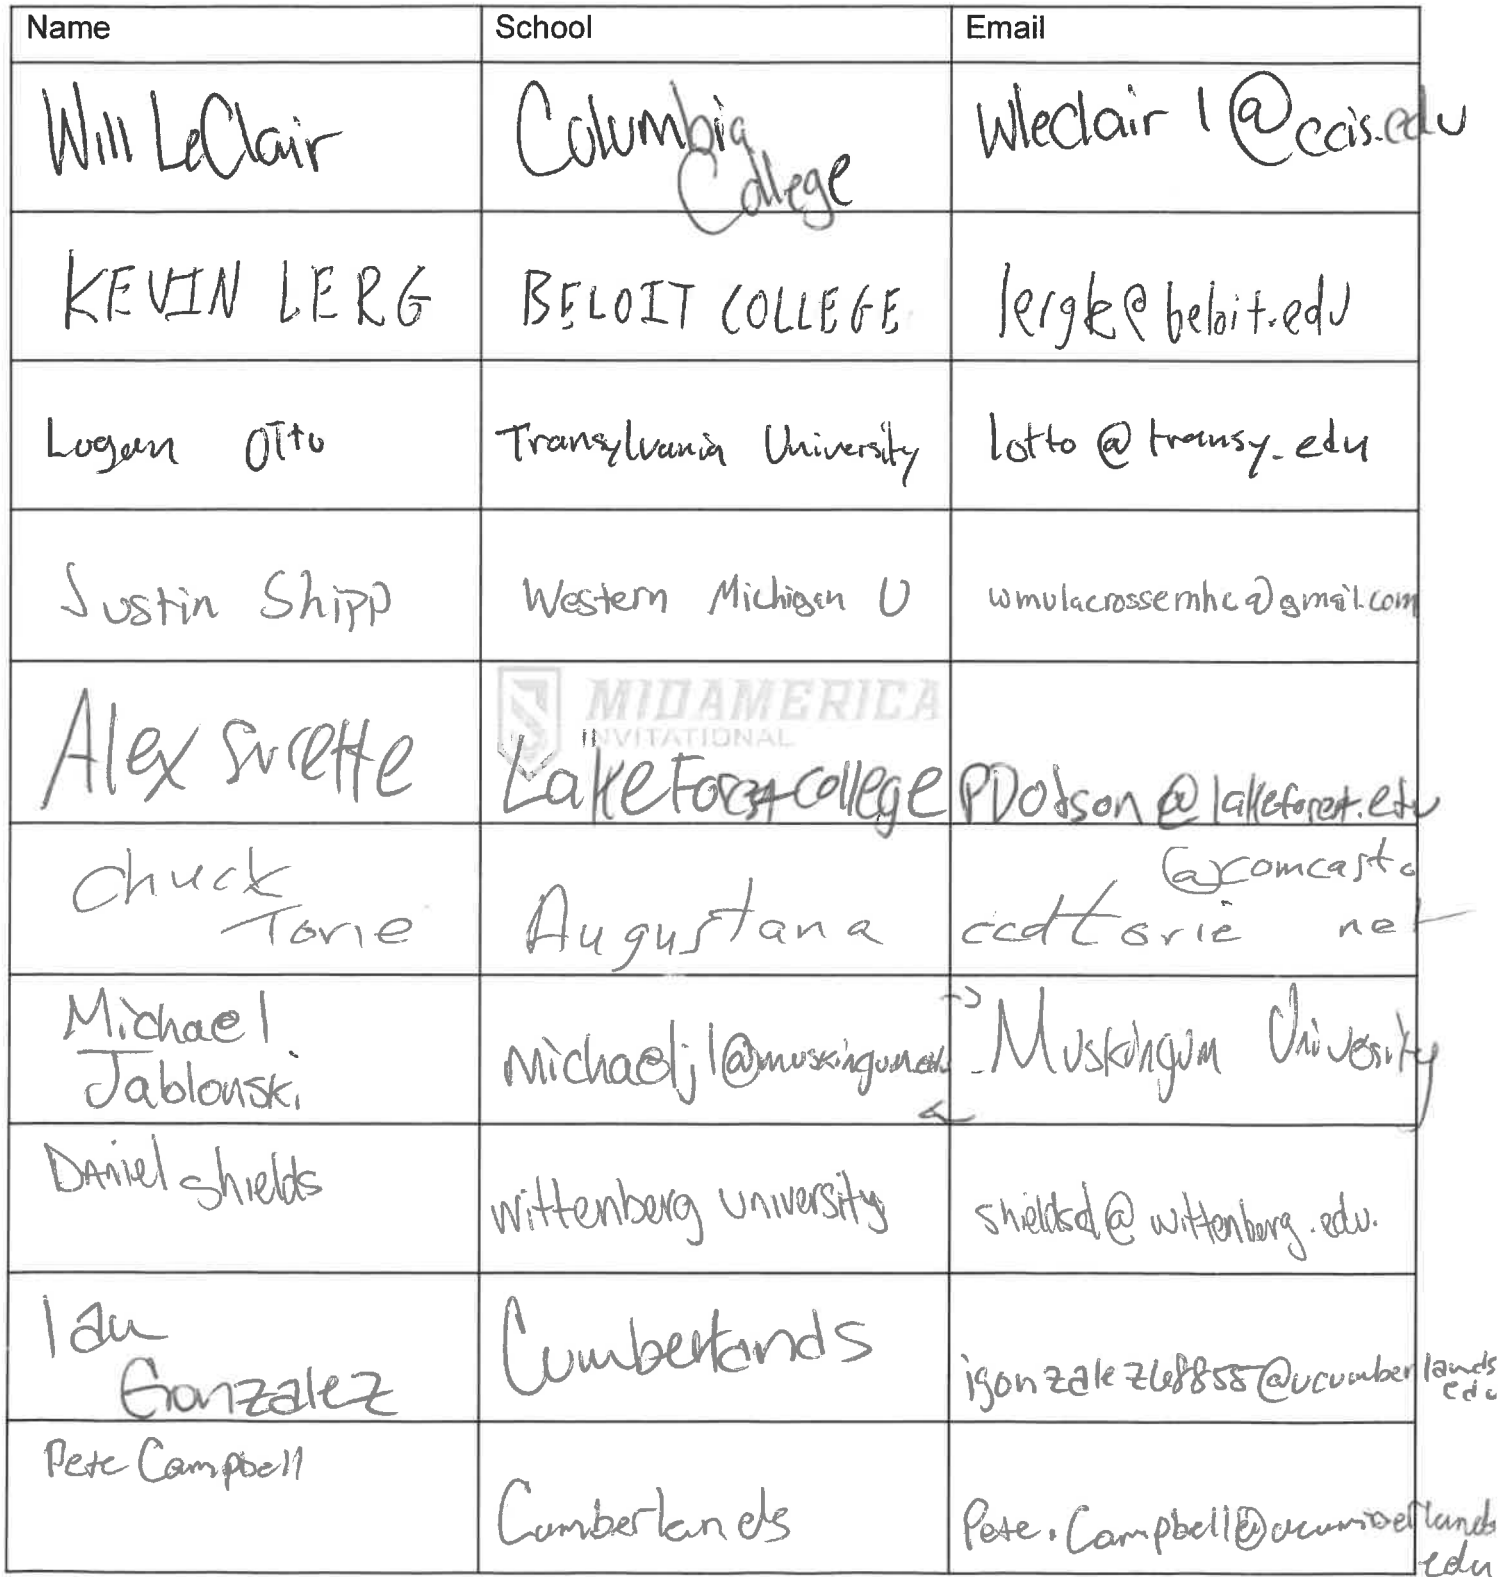 Name School Email
Will LeClair Columbia College wleclair1@ccis.edu
KEVIN LERG BELOIT COLLEGE lergk@beloit.edu
Logan Otto Transylvania University lotto@transy.edu
Justin Shipp Western Michigan U wmulacrossemhc@gmail.com
MIDAMERICA
INVITATIONAL
Alex Surette Lake Forest college PDotson@lakeforest.edu
Chuck
Torie Augustana ccdttorie @comcast.
net
Michael
Jablonski michaelj1@muskingum.edu Muskingum University
Daniel Shields Wittenberg University shieldsd@wittenberg.edu.
Ian
Gonzalez Cumberlands @ucumberlands
edu
Pete Campbell Cumberlands Pete.Campbell@ucumberlands
edu